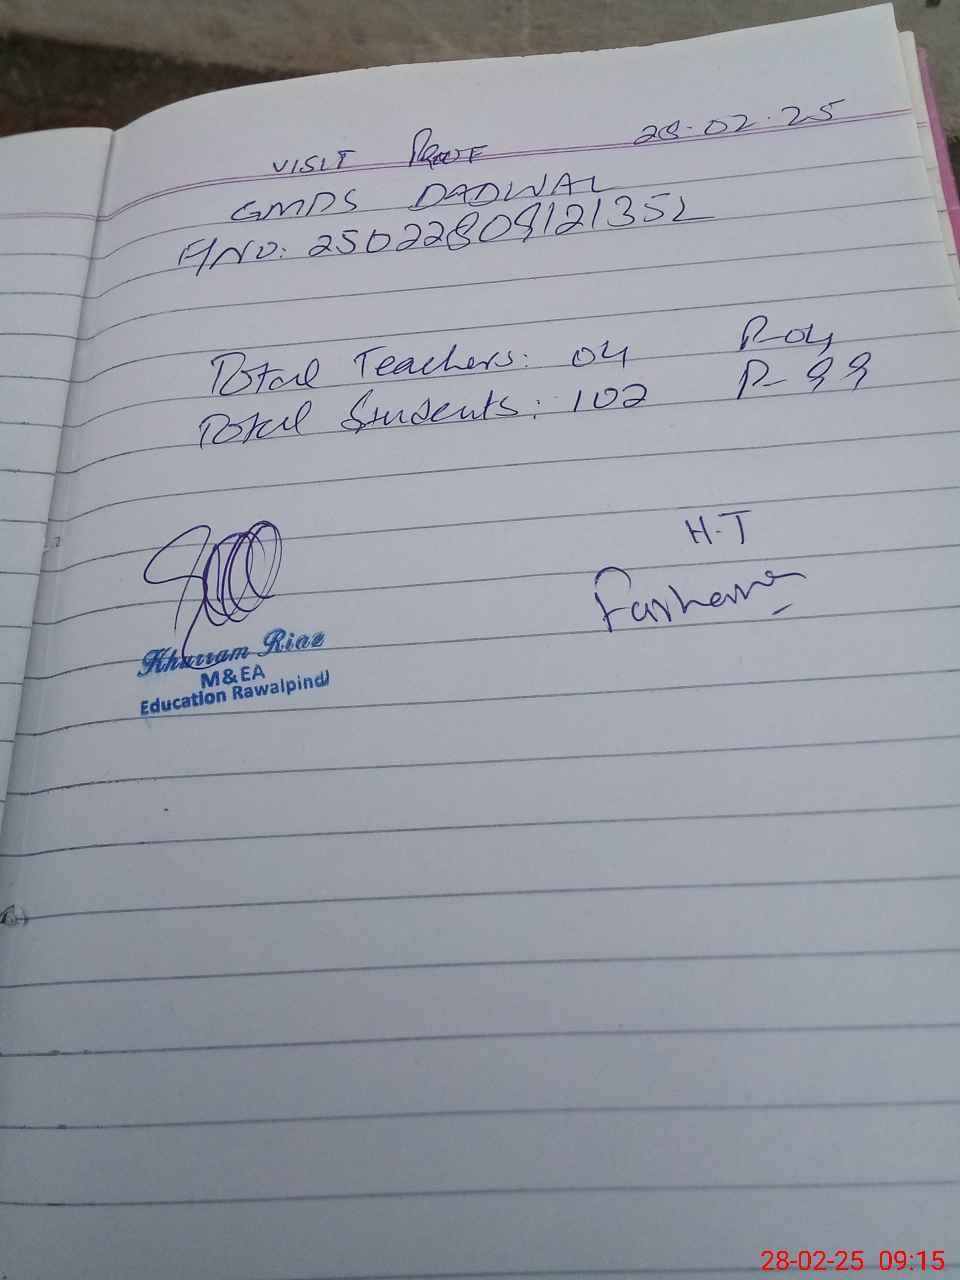 VISIT PROOF 28.02.25
GMPS DADWAL
F/NO: 25022809121352
Total Teachers: 04 P-04
Total Students: 102 P-99
H.T
Farhana
Khurram Riaz
M&EA
Education Rawalpindi
28-02-25 09:15